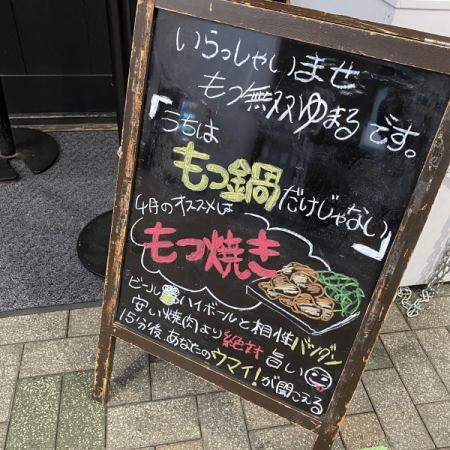 いらっしゃいませ
もつ無双ゆまるです。
「うちは
もつ鍋だけじゃない」
4月のオススメは
もつ焼き
ビール ハイボールと相性バツグン
安い焼肉より絶対旨い
15分後、あなたのウマイ!が聞こえる